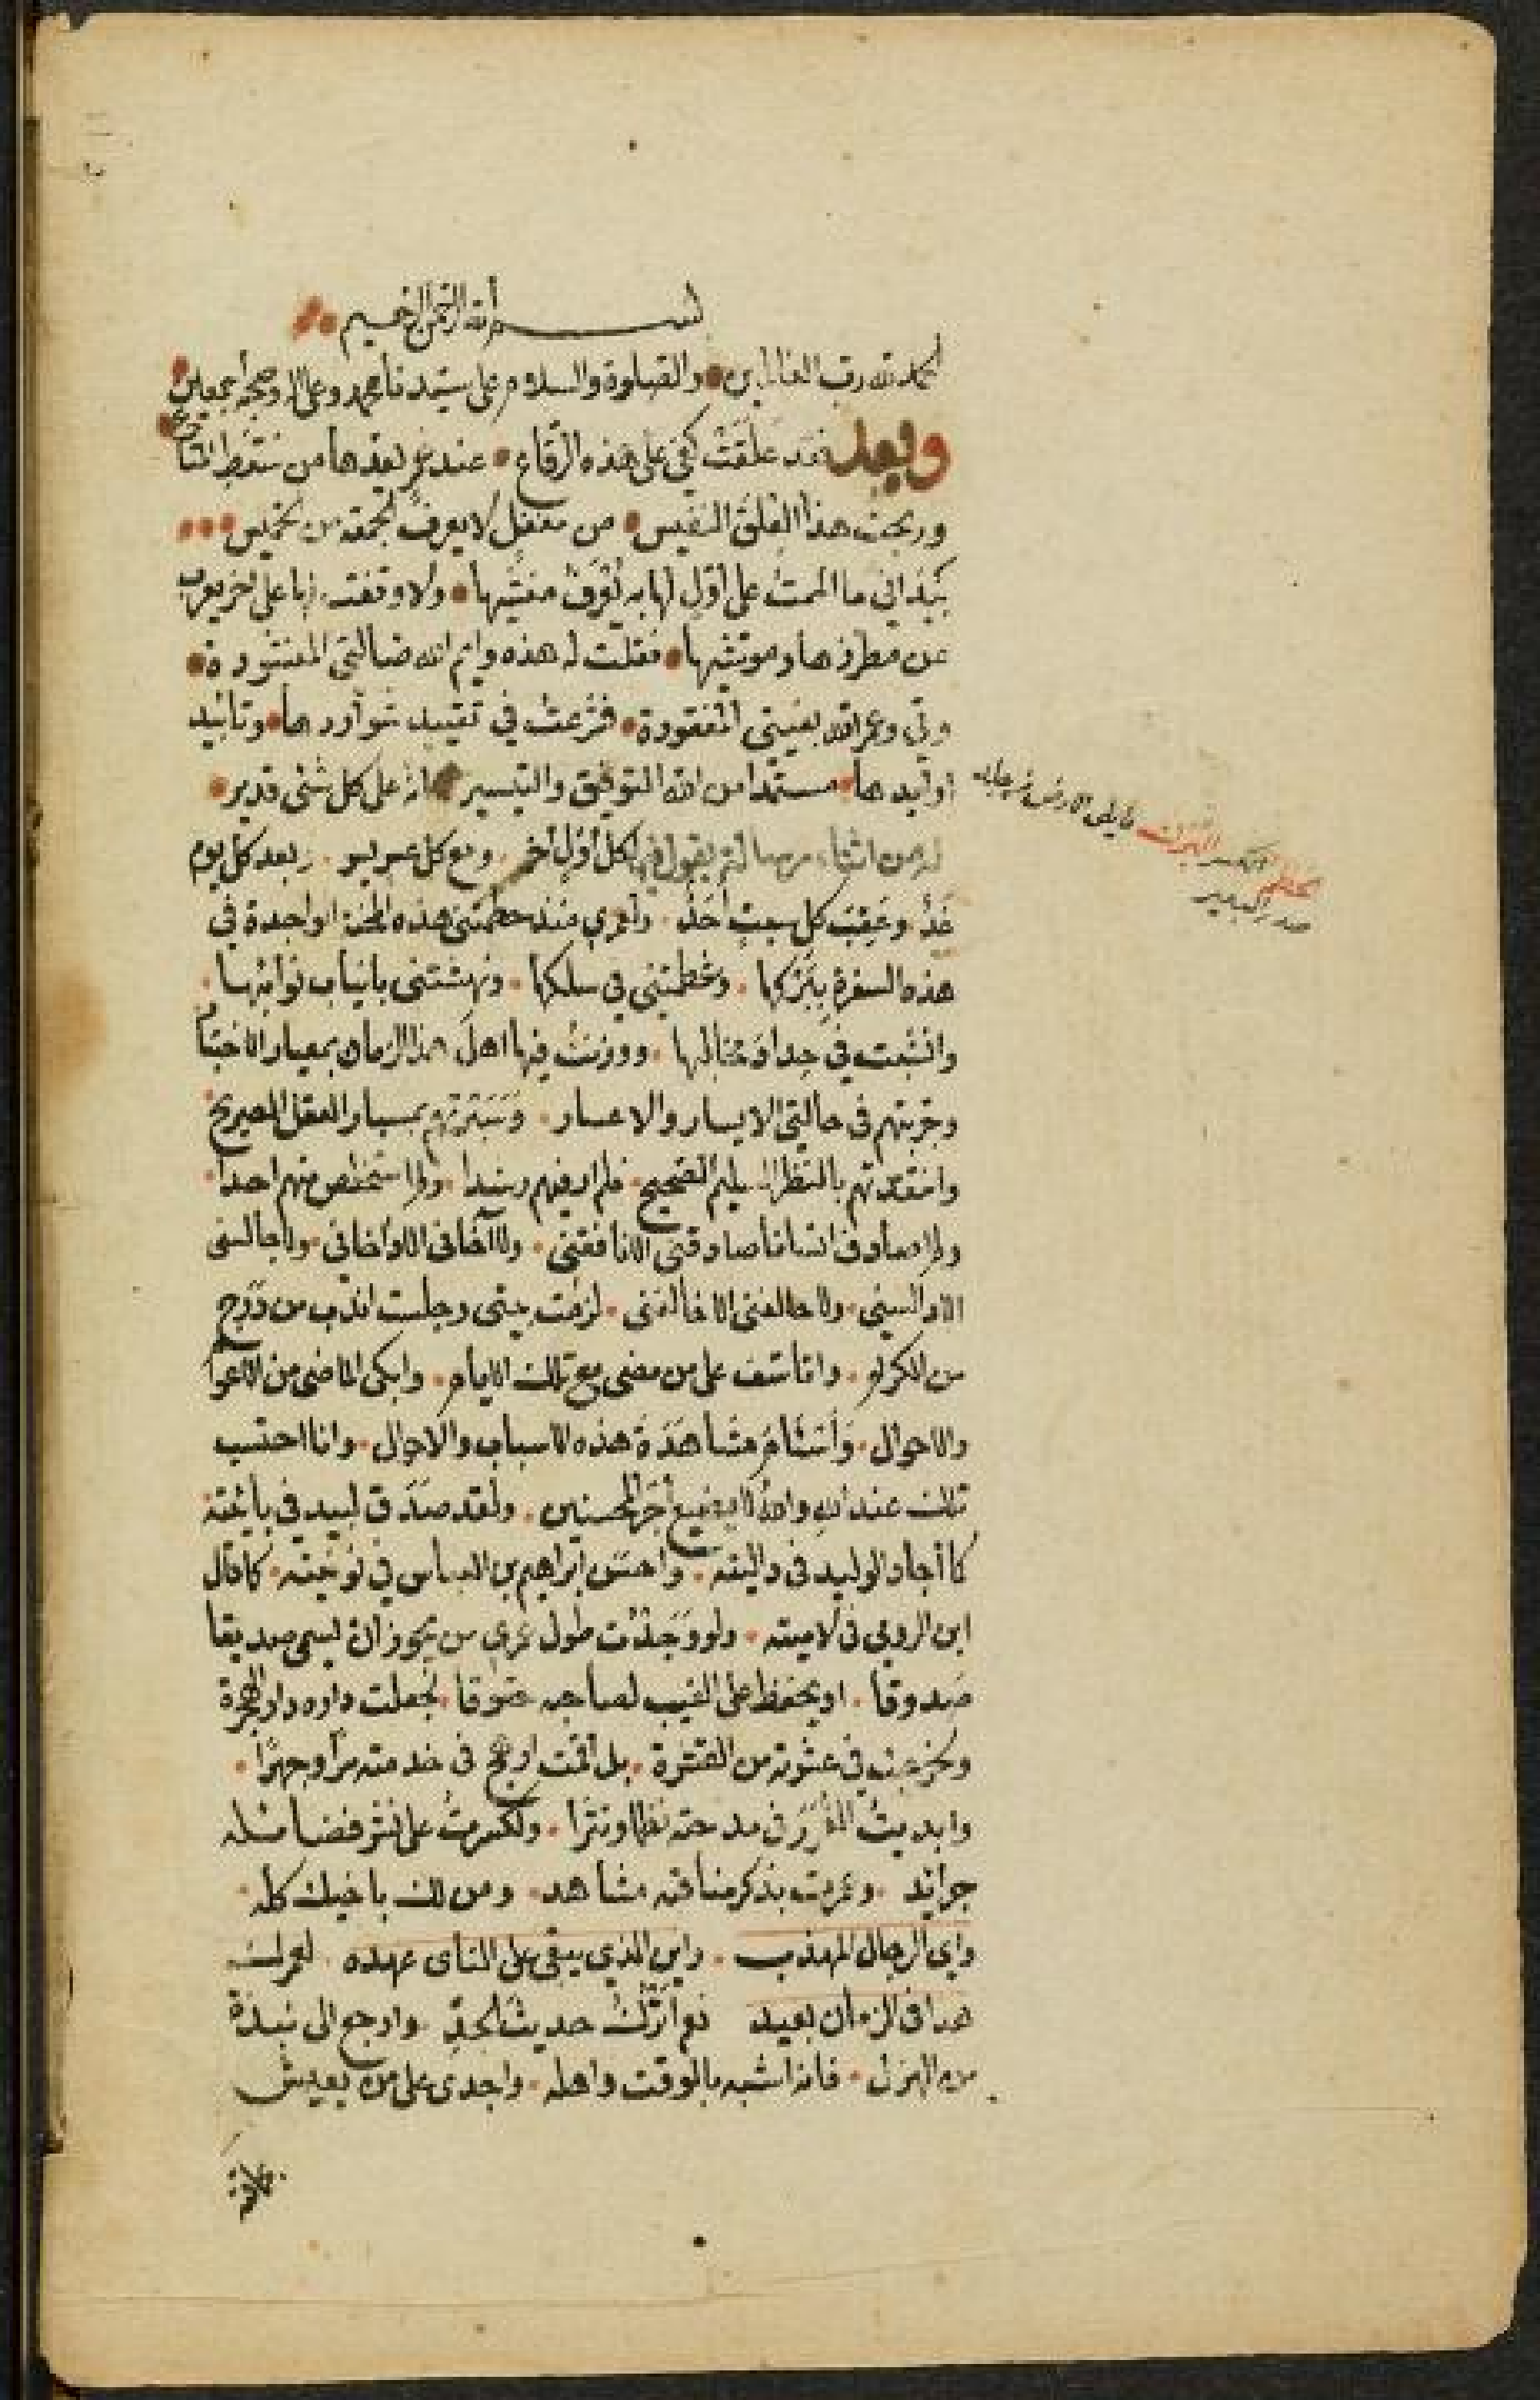 بسم الله الرحمن الرحيم
الحمد لله رب العالمين والصلوة والسلام على سيدنا محمد وعلى اله وصحبه أجمعين
وبعد فقد علقت كفي على هذه الرقاع عند من سقط المتاع
هذا العلق النفيس من مغفل لا يعرف لجمعته من خميس
بيد اني ما الممت على أول لها به تعرف منشيها ولا وقفت على اخر يعرب
عن مطرزها وموشيها فقلت له هذه وايم الله ضالتي المنشودة
وعمر الله بغيتي المفقودة فشرعت في تقييد شواردها وتأنيد
اوابدها مستمدا من الله التوفيق والتيسير انه على كل شئ قدير
لكل أول أخر ومع كل عسر يسر وبعد كل يوم
غد وعقب كل سبت أحد ولعمري منذ حطمتني هذه في
هذه السفرة ببركها في سلكها ونهشتني بانياب نوائبها
وانشبت في مخالبها ووزنت فيها اهل هذا الزمان بمعيار الاختبا
وجربتهم في حالتي الايسار والاعسار وسبرتهم بمسبار العقل الصريح
وانتقدتهم بالنظر السليم الصحيح فلم ار فيهم رشيدا ولم استخلص منهم احدا
ولم اصادف انسانا صادقني الا نافقني ولا آخاني الا ولا جالسني
الا ولا حالفني الا خالفني لزمت بيتي وجلست اندب من درج
من الكرام واتأسف على من مضى مع تلك الايام وابكي الماضي من الاعوا
والاحوال مشاهدة هذه الاسباب والاحوال وانا احتسب
تلك عند الله والله لا يضيع أجر المحسنين ولقد صدق لبيد في بائيته
كما أجاد الوليد في داليته واحسن ابراهيم بن العباس في كما قال
ابن الرومي في لاميته ولو وجدت طول عمري من يجوز ان يسمى صديقا
صدوقا او يحفظ على الغيب لصاحبه حقوقا لجعلت داره دار الهجرة
في خدمته سرا وجهرا
وابديت الغرر في مدحته نظما ونثرا على نشر فضائله
جرائد بذكر مناقبه مشاهد ومن لك باخيك كله
واي الرجال المهذب واين الذي يبقى على النأى عهده لعمرك
هذا في الزمان بعيد نعم أترك حديث الجد وارجع الى نبذة
من الهزل فانه اشبه بالوقت واهله واجدى على من يعيش
ما يلى الارض من
صدر البعير